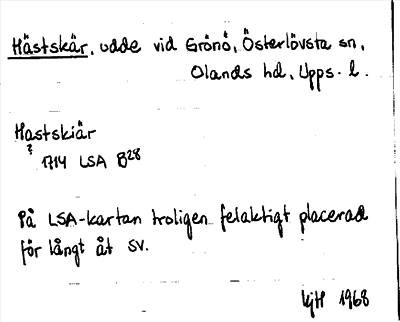 Hästskär, udde vid Grönö, Österlövsta sn,
Olands hd, Upps. l.
Hastskiär
? 1714 LSA B28
På LSA-kartan troligen felaktigt placerad
för långt åt SV.
1968